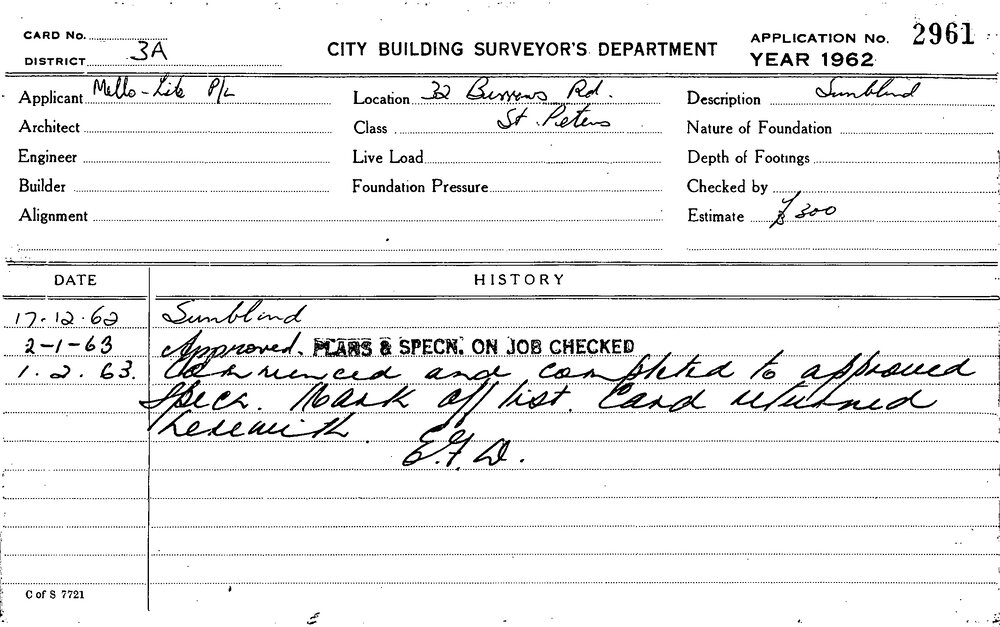 CARD No.
DISTRICT 3A
CITY BUILDING SURVEYOR'S DEPARTMENT
APPLICATION No. 2961
YEAR 1962
Applicant Mello-Lite P/L
Location 32 Burrows Rd.
Description Sunblind
Architect
Class St. Peters
Nature of Foundation
Engineer
Live Load
Depth of Footings
Builder
Foundation Pressure
Checked by
Alignment
Estimate £300
DATE HISTORY
17.12.62 Sunblind
2-1-63 Approved. PLANS & SPECN. ON JOB CHECKED
1.2.63. Commenced and completed to approved
Specn. Mark off list. Card returned
herewith.
E.F.D.
C of S 7721